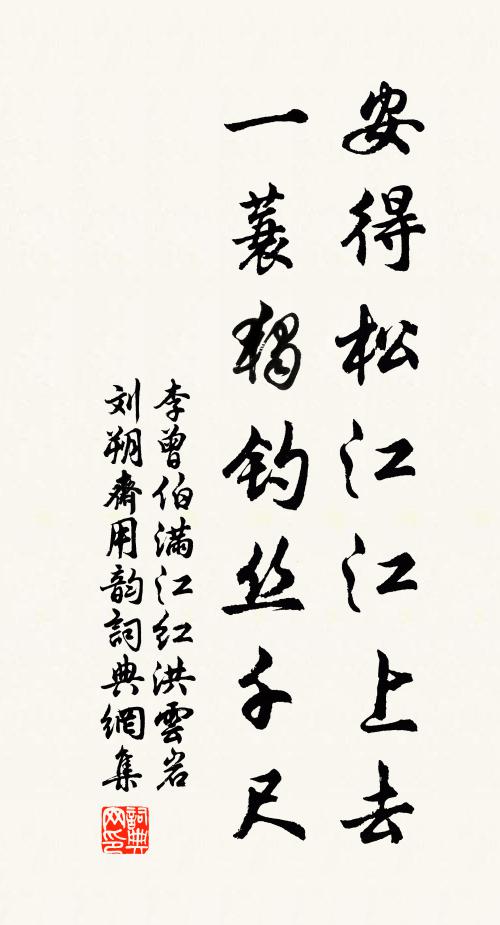 安得松江江上去
一蓑獨钓丝千尺
李曾伯满江红洪雲岩
刘朔斋用韵詞典網集
詞典网印